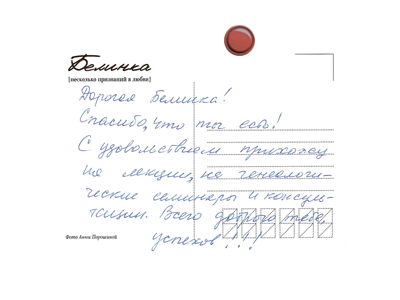 Белинка
[несколько признаний в любви]
Дорогая Белинка!
Спасибо, что ты есть!
С удовольствием прихожу
на лекции, на генеалоги-
ческие семинары и консуль-
тации. Всего доброго тебе,
успехов!!!
Фото Анны Паршиной